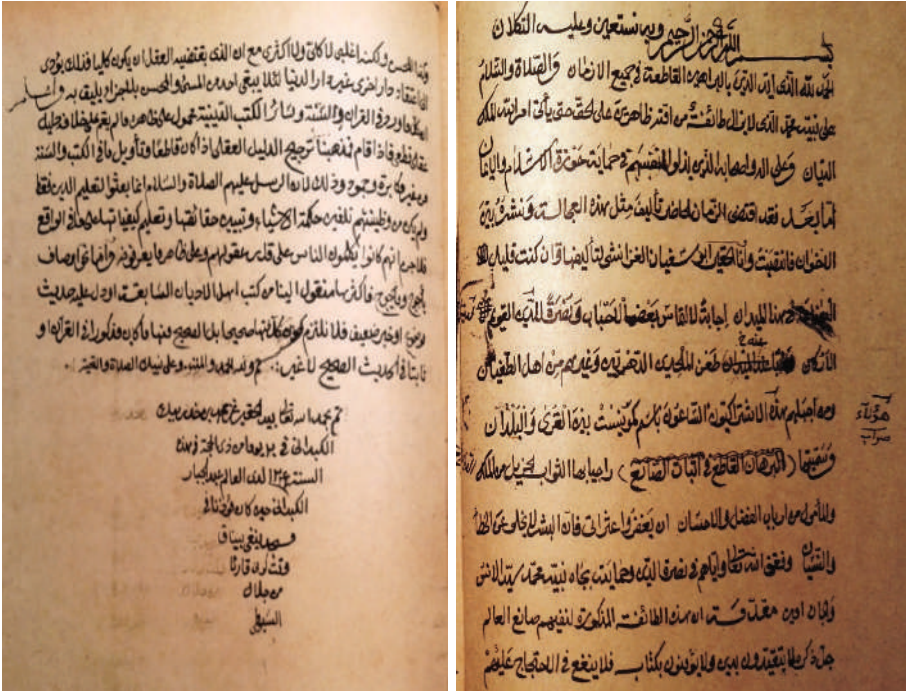 بسم الله الرحمن الرحيم وبه نستعين وعليه التكلان
الحمد لله الذي ايد الدين بالبراهين القاطعة في جميع الازمان والصلاة والسلام
على نبيه محمد الذي لا يزال طائفة من امته ظاهرين على الحق حتى يأتي امر الله الملك
البيان وعلى اله واصحابه الذين بذلوا انفسهم في حماية حوزة الاسلام والايمان
اما بعد فقد اقتضى الزمان الحاضر تأليف مثل هذه العجالة ونشره بين
الاخوان فانتصبت وانا الحقير ابو سفيان الغزانشي لتأليفها وان كنت قليل
في هذا الميدان إجابة لالتماس بعض الاحباب ونصرة للدين القوي
الاركان طعن الملحدين الدهريين وغيرهم من اهل الطغيان
ومن اجلهم هذه الاشتراكيون الشاعون باسم كمونيست بين القرى والبلدان
وسميتها (البرهان القاطع في اثبات الصانع) راجيا بها الثواب الجزيل من الملك
والمأمول من ارباب الفضل والاحسان ان يغفروا عثراتي فان البشر لا يخلو عن الخطأ
والنسيان وفقني الله تعالى واياهم في نصرة الدين وحمايته بجاه نبيه محمد سيد الانس
والجان مقدمة ان هذه الطائفة المذكورة لنفيهم صانع العالم
جل ذكره لا يتقيدون بدين ولا يؤمنون بكتاب فلا ينفع في الاحتجاج عليهم
هؤلاء
ولكنه اغلبي لا كلي ولا اكثري مع ان الذي يقتضيه العقل ان يكون كليا فذلك يؤدي
الى اعتقاد دار اخرى غير هذه الدنيا لئلا يبقى احد من المسئ والمحسن بلا جزاء يليق به واعلم
ان كلما ورد في القرآن والسنة وسائر الكتب الدينية محمول على ظاهره ما لم يقم على خلافه دليل
عقلي قطعي فاذا قام فمذهبنا ترجيح الدليل العقلي اذا كان قاطعا وتأويل ما في الكتب والسنة
وذلك لان الرسل عليهم الصلاة والسلام انما بعثوا لتعليم الدين فقط
ولم يكن من وظيفتهم تلقين حكمة الاشياء وتبيين حقائقها وتعليم كيفياتها على ما في الواقع
فلا جرم انهم كانوا يكلمون الناس على قدر عقولهم وعلى ظاهر ما يعرفونه واما في اوصاف
يأجوج ومأجوج فاكثرها منقول الينا من كتب اهل الاديان السابقة او دل عليه حديث
موضوع او خبر ضعيف فلا نلتزم كون كلها صحيحا بل الصحيح منها ما كان مذكورا في القرآن و
ثابتا في الحديث الصحيح لا غير ولله الحمد والمنة وعلى نبيه الصلاة والتحية
تم بحمد الله تعالى بيد الحقير
في يوما من ذي الحجة في هذه
السنة لدى العالم عبد الجبار
حين كان
وقت
من جلال
السيوطي